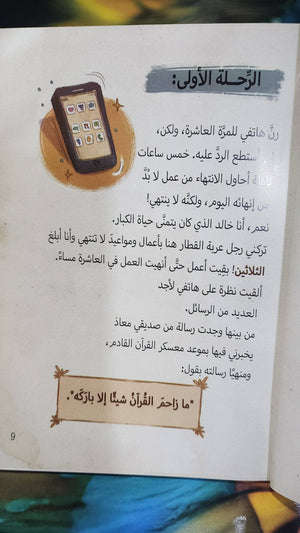 الرِّحلة الأولى:
رنَّ هاتفي للمرَّة العاشرة، ولكن،
أستطع الردَّ عليه. خمس ساعات
أحاول الانتهاء من عمل لا بُدَّ
من إنهائه اليوم، ولكنَّه لا ينتهي!
نعم، أنا خالد الذي كان يتمنَّى حياة الكبار.
تركني رجل عربة القطار هنا بأعمال ومواعيدَ لا تنتهي وأنا أبلغ
الثلاثين! بقِيت أعمل حتَّى أنهيت العمل في العاشرة مساءً.
ألقيت نظرة على هاتفي لأجد
العديد من الرسائل.
من بينها وجدت رسالة من صديقي معاذ
يخبرني فيها بموعد معسكر القرآن القادم،
ومنهيًا رسالته بقول:
"ما زاحمَ القُرآنُ شيئًا إلا بارَكَه".
9